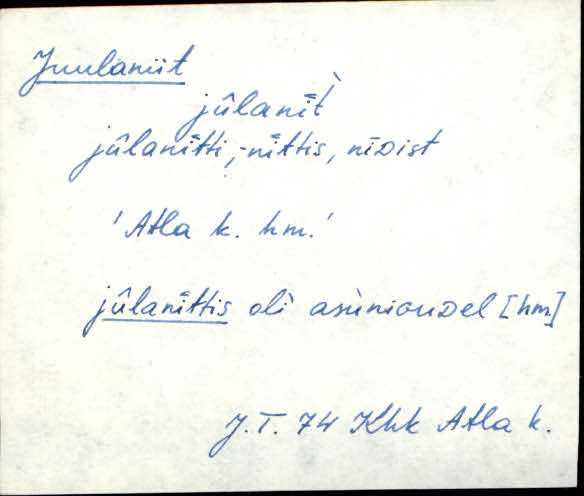 Juulaniit
jûlanīt̀
jûlanītti, -nīttis, nīᴅist
'Atla k. hm.'
jûlanīttis oĺi asùnionᴅel [hm]
J.T. 74 Khk Atla k.